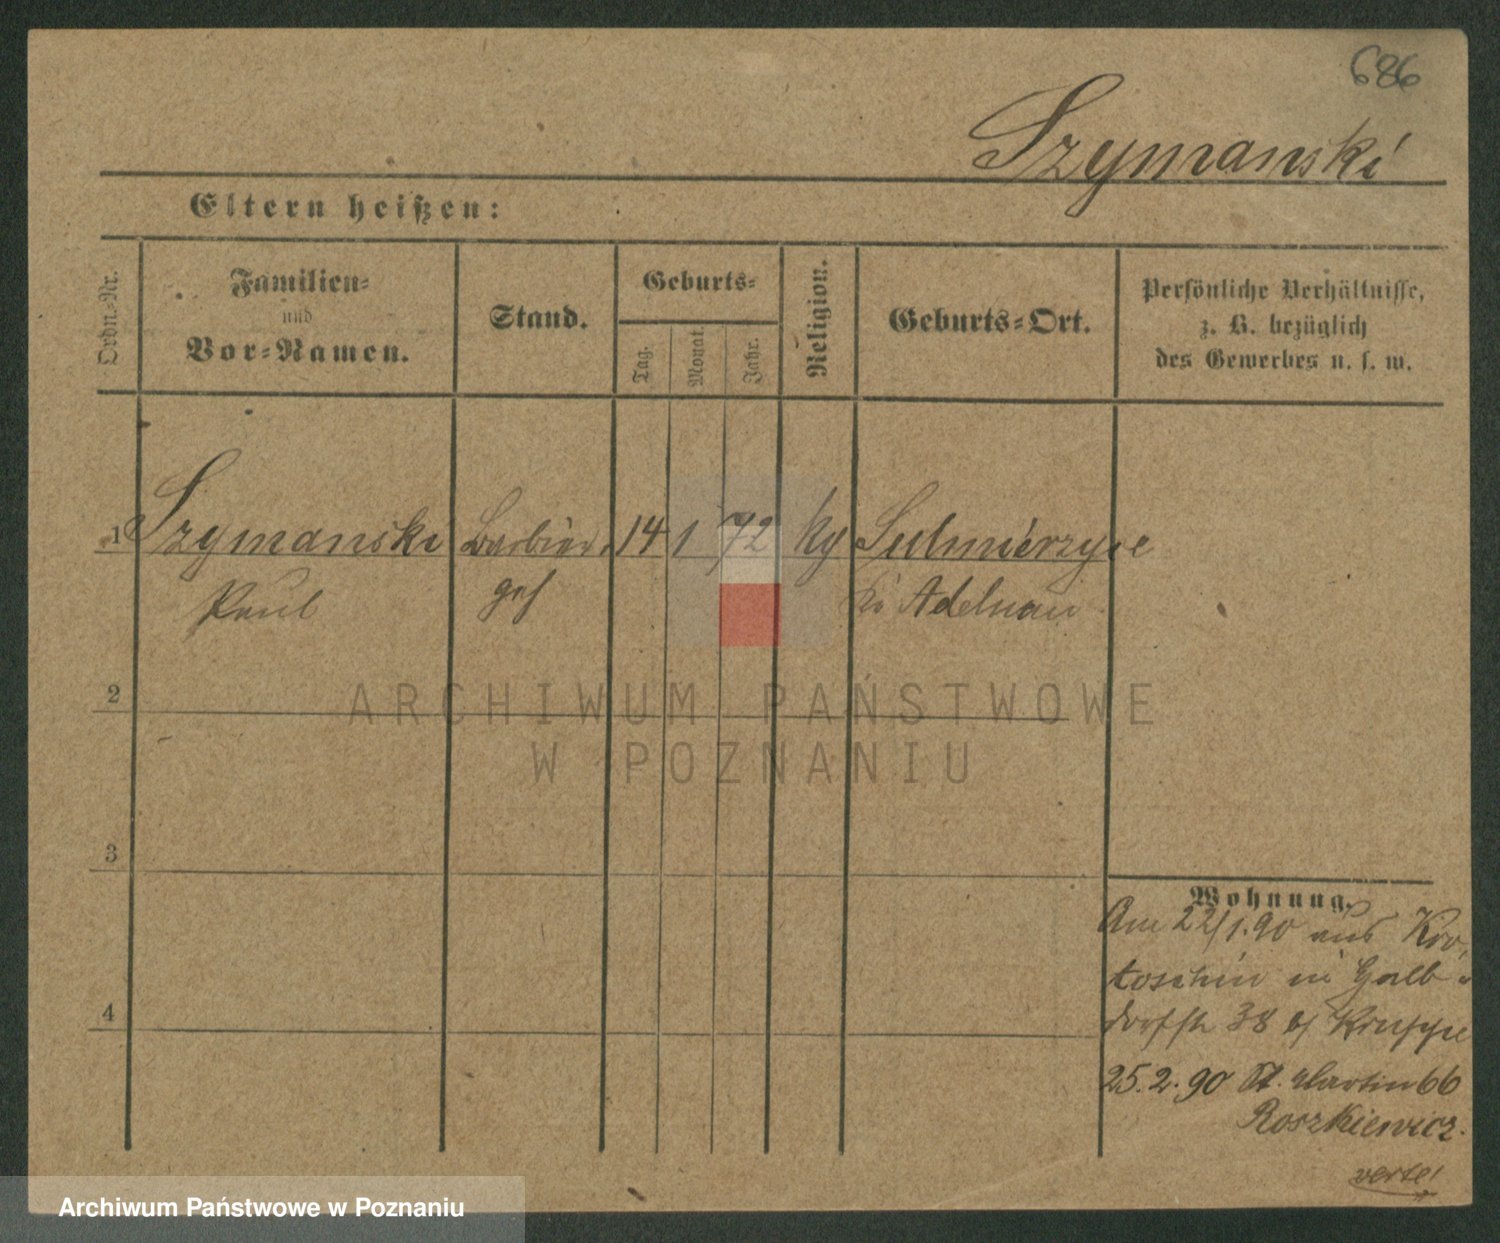 686
Szymanski
Eltern heißen:
Ordn.-Nr.
Familien-
und
Vor-Namen.
Stand.
Geburts-
Tag.
Monat.
Jahr.
Religion.
Geburts-Ort.
Persönliche Verhältnisse,
z. B. bezüglich
des Gewerbes u. s. w.
1 Szymanski Barbier 14 1 72 Sulmierzyce
Paul geh Adelnau
2
ARCHIWUM PAŃSTWOWE
W POZNANIU
3
Wohnung.
Am 22/1.90 aus Kro-
toschin in Halb-
dorfstr 38 b/
4
25.2.90 St. Martin 66
Roszkiewicz.
verte!
Archiwum Państwowe w Poznaniu